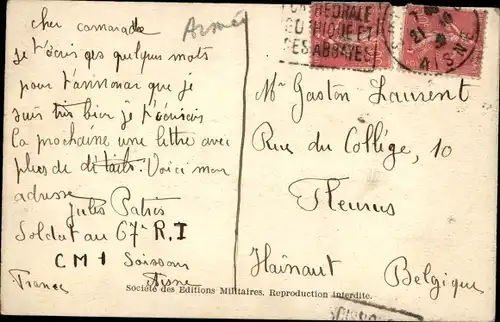 cher camarade
Armée
je t'écris ces quelques mots
pour t'annoncer que je
suis très bien je t'écrirais
la prochaine une lettre avec
plus de détails. Voici mon
adresse
Jules Patris
Soldat au 67e R.I
CM1 Soissons
Aisne
France
GOTHIQUE ET
SES ABBAYES
AISNE
Mr Gaston Laurent
Rue du Collège, 10
Fleurus
Hainaut Belgique
Société des Editions Militaires. Reproduction interdite.